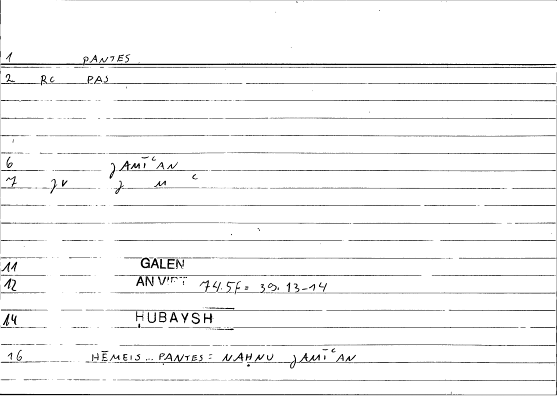 1 PANTES
2 RC PAS
6 JAMĪʿAN
7 JV J M ʿ
11 GALEN
12 AN VIRT 74.5f = 39.13-14
14 ḤUBAYSH
16 HĒMEIS ... PANTES: NAḤNU JAMĪʿAN